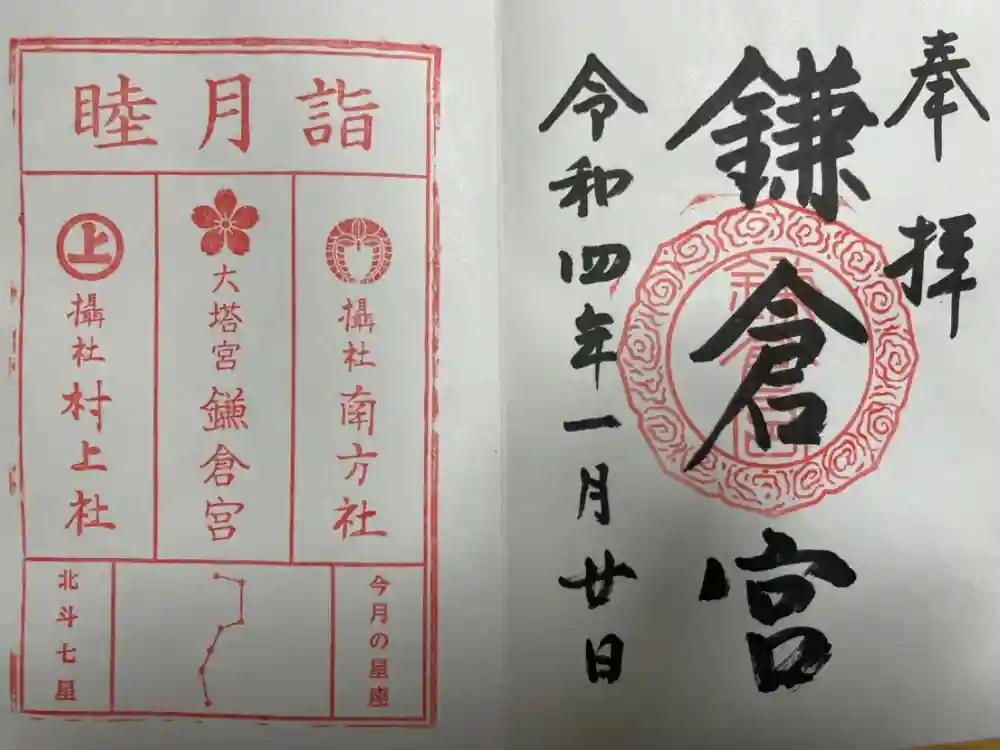 奉拝
鎌倉宮
令和四年一月廿日
睦月詣
攝社 南方社
大塔宮 鎌倉宮
上
攝社 村上社
今月の星座
北斗七星